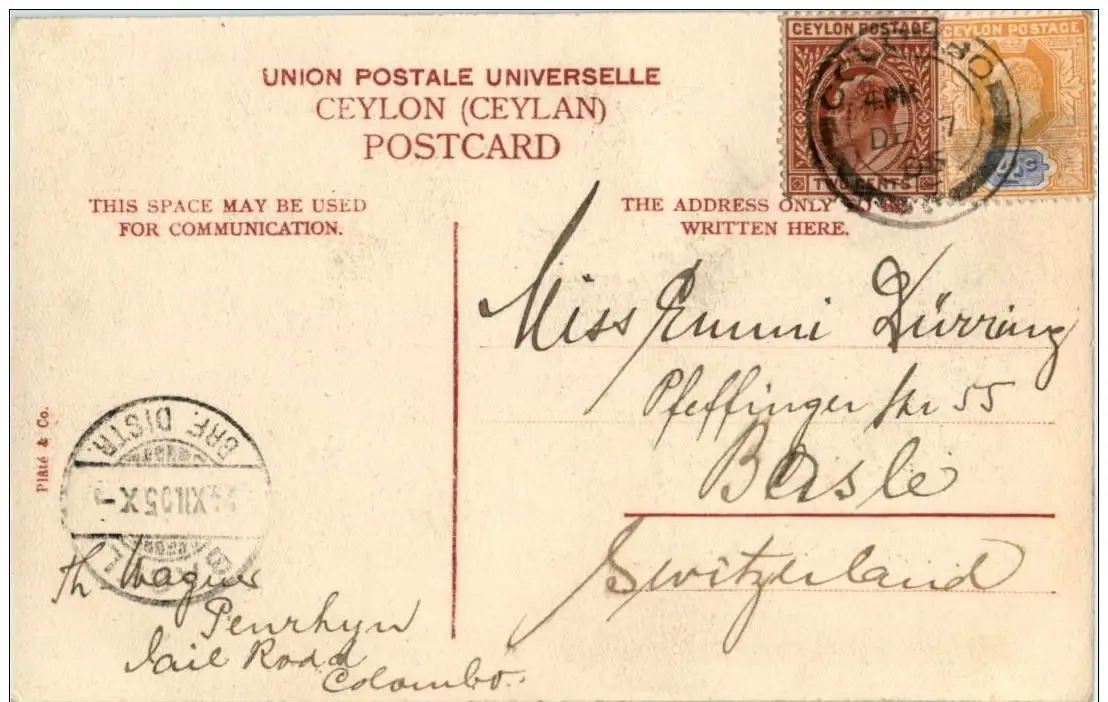 UNION POSTALE UNIVERSELLE
CEYLON (CEYLAN)
POSTCARD
CEYLON POSTAGE
TWO CENTS
CEYLON POSTAGE
COLOMBO
4 PM
DE 7
05
THIS SPACE MAY BE USED
FOR COMMUNICATION.
THE ADDRESS ONLY TO BE
WRITTEN HERE.
Miss Emmi Dürring
Pfeffinger Str 55
Basle
Switzerland
Platé & Co.
BRF. DISTR.
XII.05.X
Th. Wagner
Penrhyn
Jail Road
Colombo.